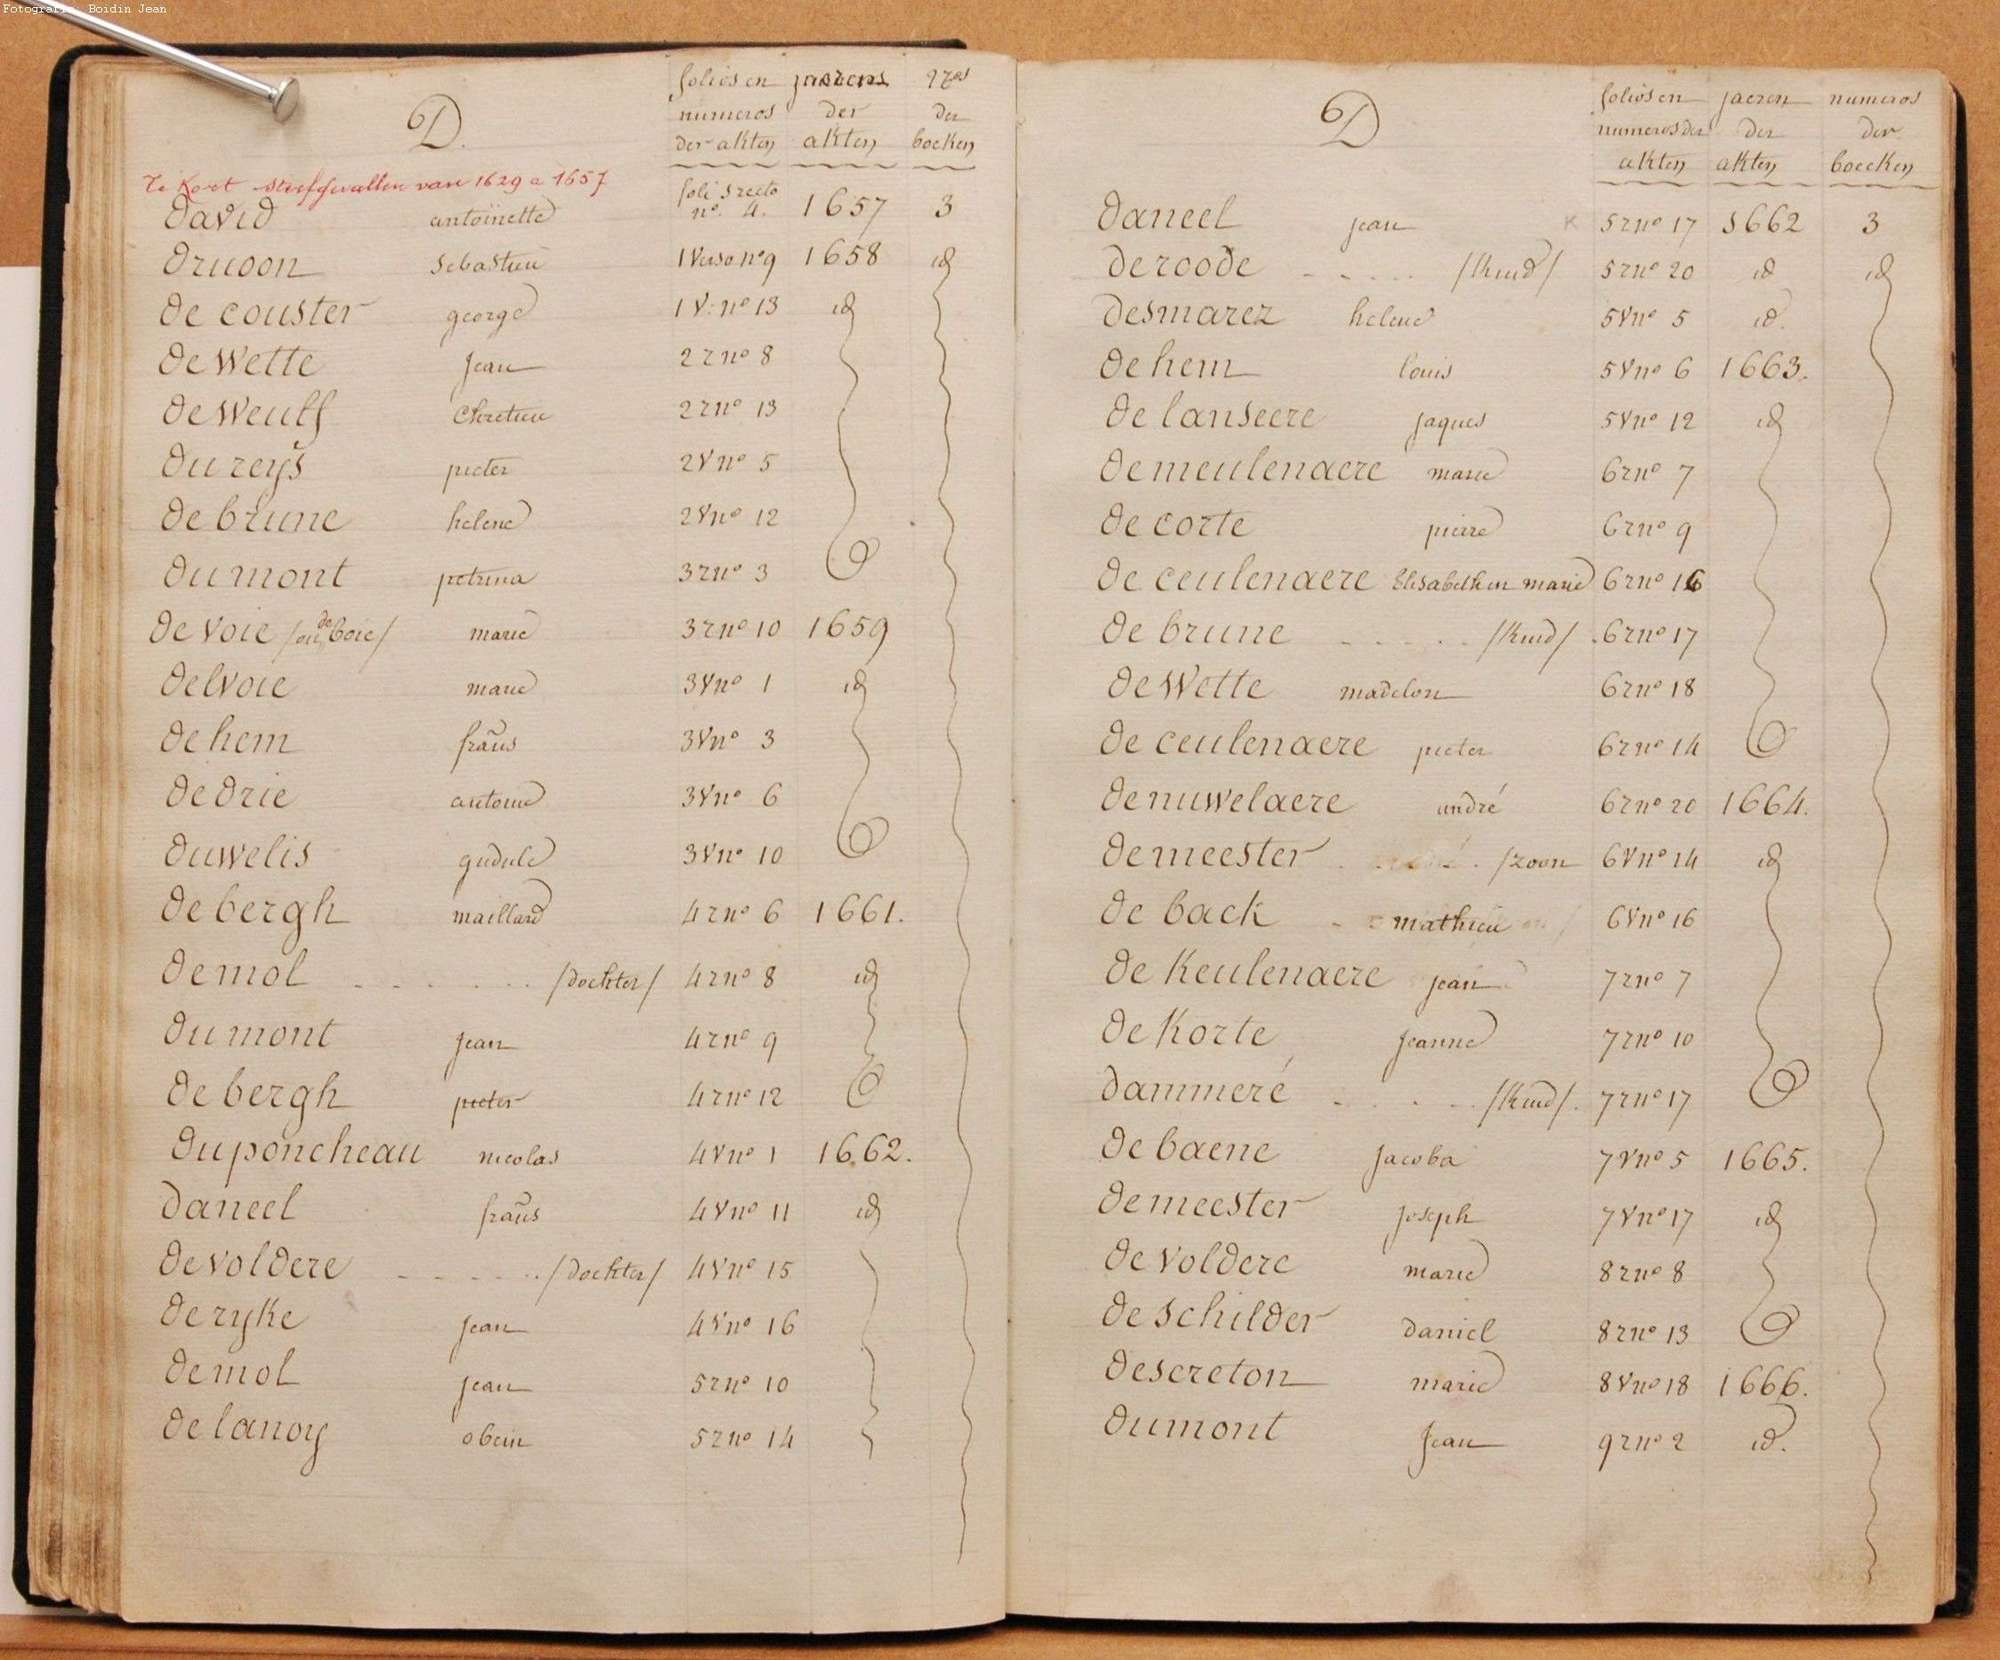 Fotografie: Boidin Jean
D.
folios en numeros der akten
jaeren der akten
nros der boeken
Te Kort sterfgevallen van 1629 a 1657
david antoinette folio 1 recto no. 4. 1657 3
druoon sebastien 1 verso no 9 1658 id
de couster george 1 v. no 13 id
de wette jean 2 r no 8
de weulf chretien 2 r no 13
du reys pieter 2 v no 5
de brune helene 2 v no 12
du mont petrina 3 r no 3
de voie /ou de boie/ marie 3 r no 10 1659
delvoie marie 3 v no 1 id
de hem frans 3 v no 3
de drie antoine 3 v no 6
duwelis gudule 3 v no 10
de bergh maillard 4 r no 6 1661.
de mol - - - - - - /dochter/ 4 r no 8 id
du mont jean 4 r no 9
de bergh pieter 4 r no 12
duponcheau nicolas 4 v no 1 1662.
daneel frans 4 v no 11 id
de voldere - - - - - - /dochter/ 4 v no 15
de ryke jean 4 v no 16
de mol jean 5 r no 10
de lanoy obein 5 r no 14
D
folios en numeros der akten
jaeren der akten
numeros der boecken
daneel jean x 5 r no 17 1662 3
de roode - - - - - /kind/ 5 r no 20 id id
desmarez helene 5 v no 5 id.
de hem louis 5 v no 6 1663.
de lanseere jaques 5 v no 12 id
de meulenaere marie 6 r no 7
de corte pierre 6 r no 9
de ceulenaere Elisabeth en marie 6 r no 16
de brune - - - - - /kind/ . 6 r no 17
de wette madelon 6 r no 18
de ceulenaere pieter 6 r no 14
de nuwelaere andré 6 r no 20 1664.
de meester /zoon 6 v no 14 id
de back mathieu 6 v no 16
de keulenaere jean 7 r no 7
de korte jeanne 7 r no 10
dammeré - - - - - /kind/. 7 r no 17
de baene jacoba 7 v no 5 1665.
de meester joseph 7 v no 17 id
de voldere marie 8 r no 8
de schilder daniel 8 r no 13
descreton marie 8 v no 18 1666.
dumont jean 9 r no 2 id.